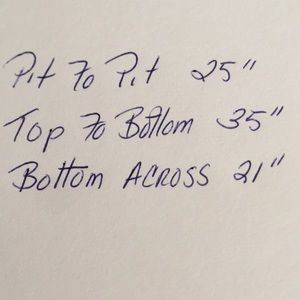 Pit To Pit 25"
Top To Bottom 35"
Bottom ACROSS 21"